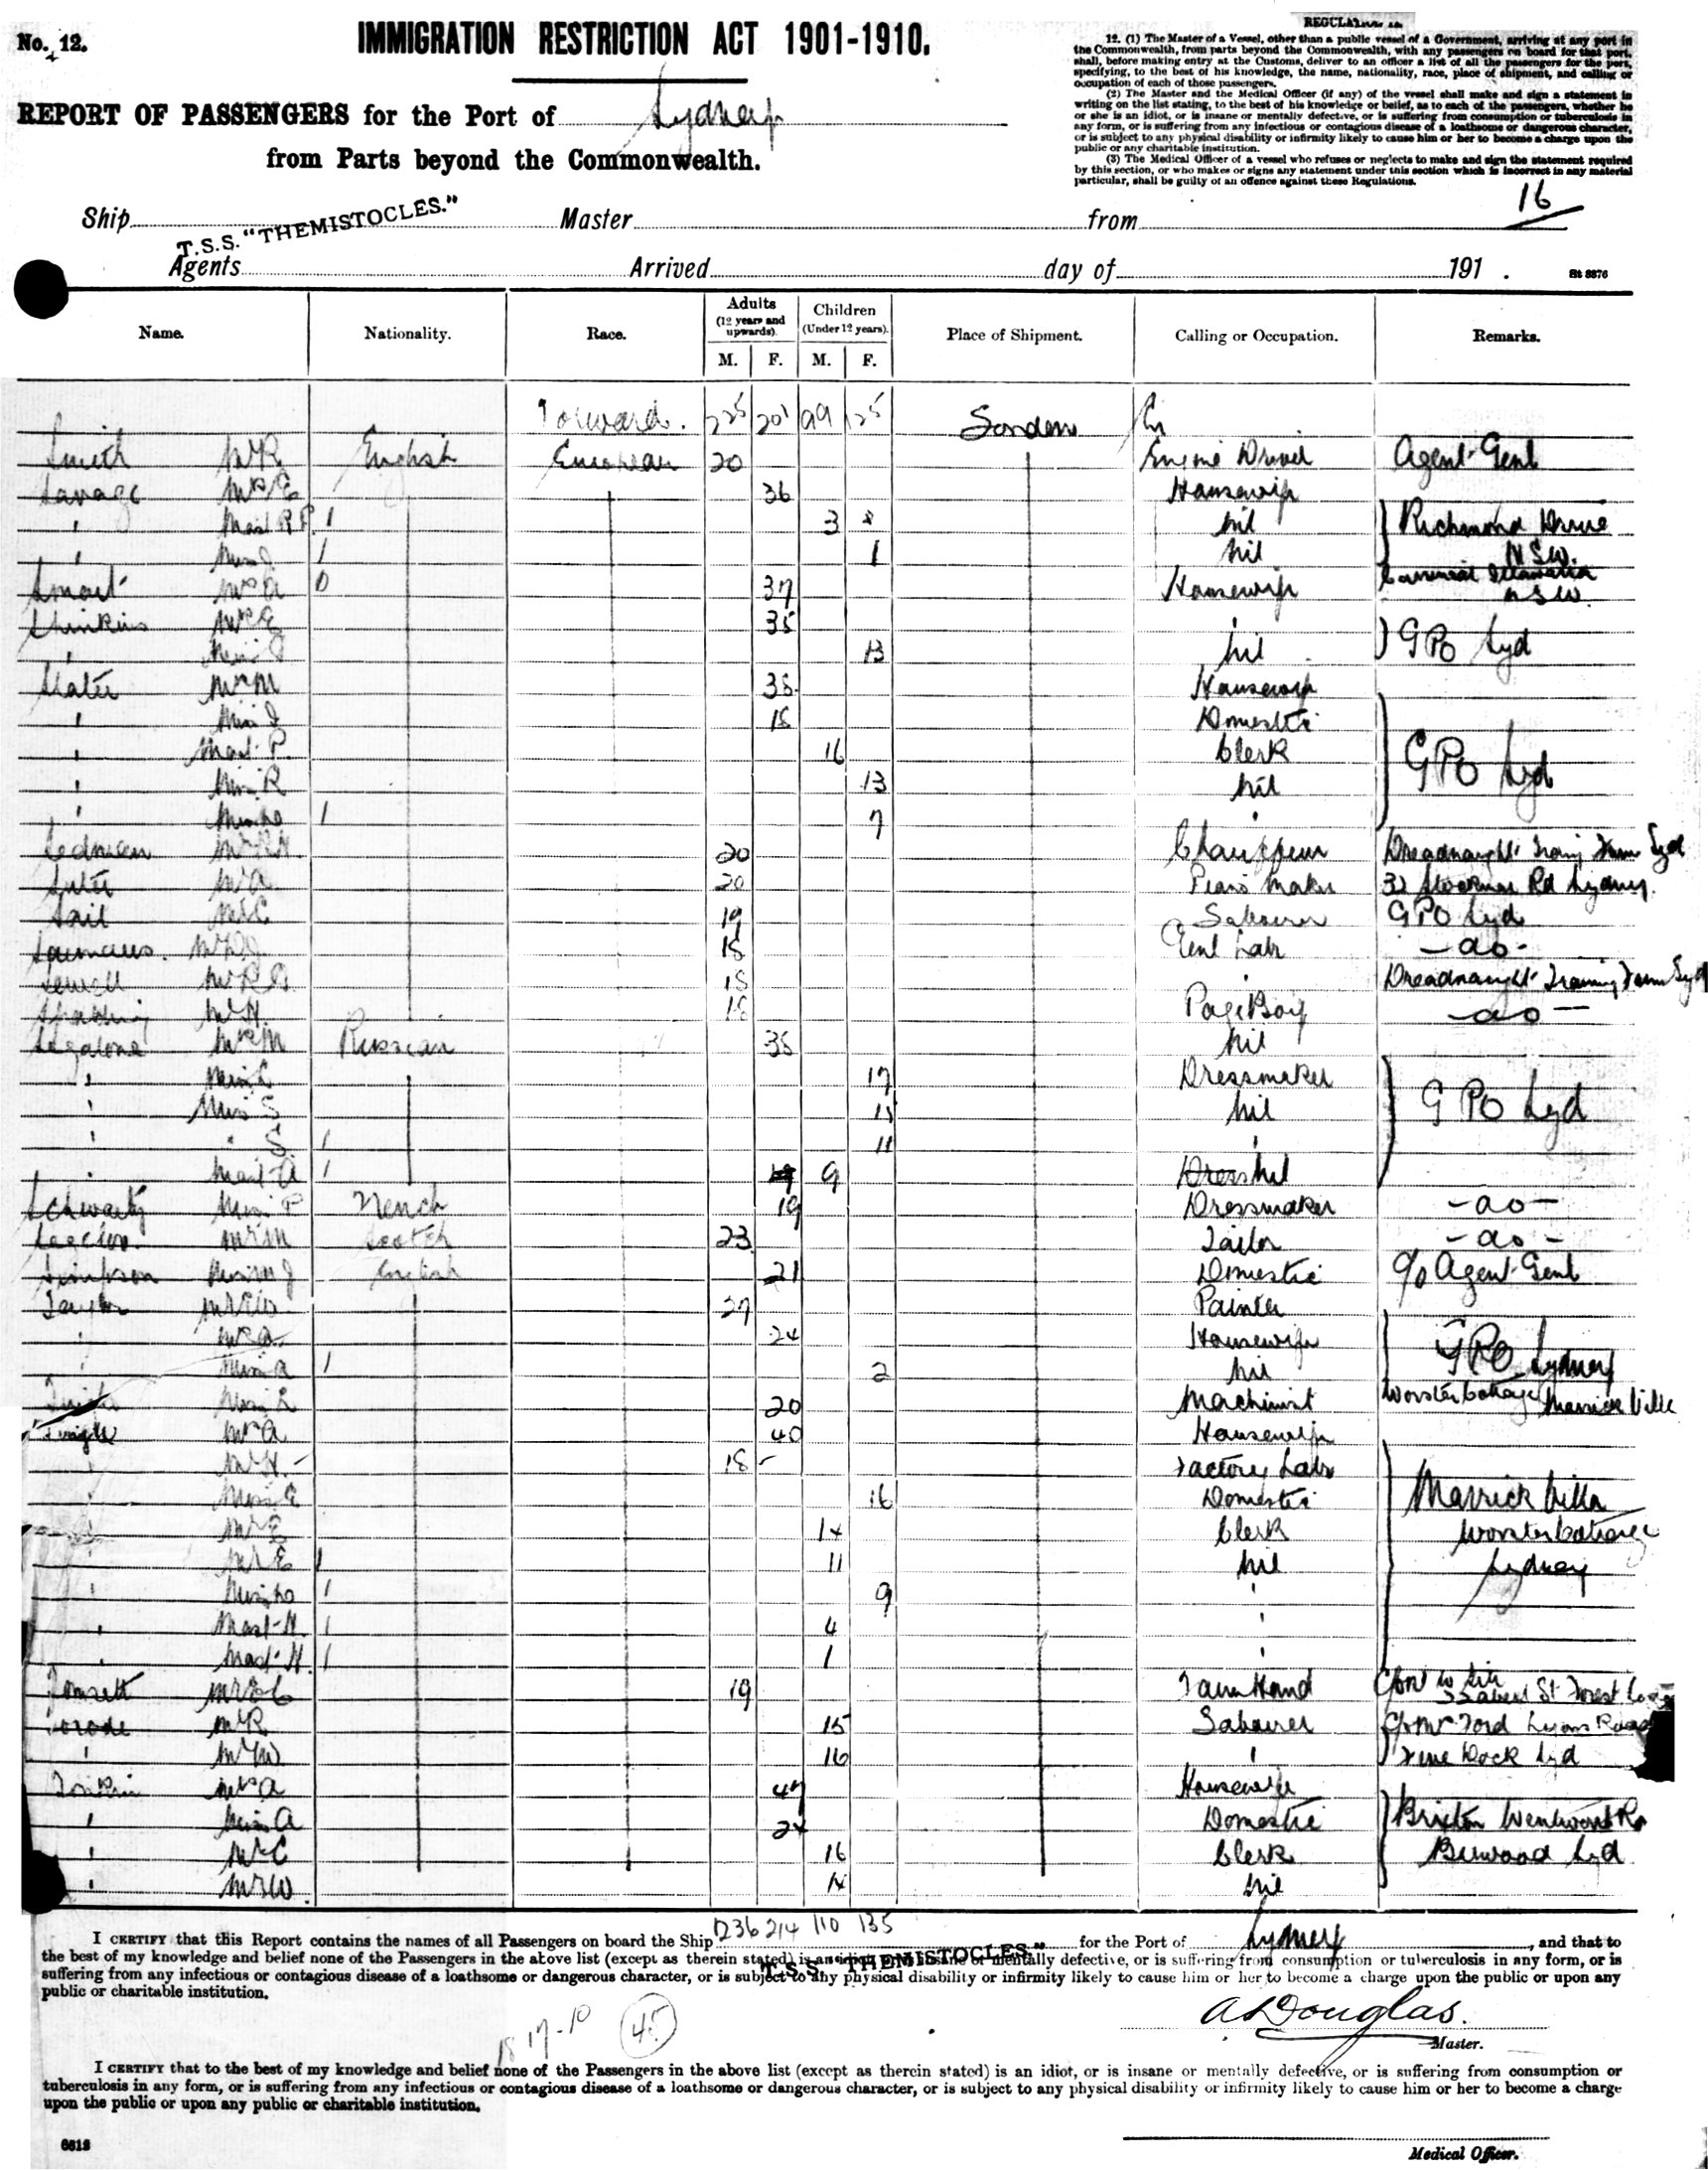 No. 12.
IMMIGRATION RESTRICTION ACT 1901-1910.
REPORT OF PASSENGERS for the Port of Sydney
from Parts beyond the Commonwealth.
12. (1) The Master of a Vessel, other than a public vessel of a Government, arriving at any port in
the Commonwealth, from parts beyond the Commonwealth, with any passengers on board for that port,
shall, before making entry at the Customs, deliver to an officer a list of all the passengers for the port,
specifying, to the best of his knowledge, the name, nationality, race, place of shipment, and calling or
occupation of each of those passengers.
(2) The Master and the Medical Officer (if any) of the vessel shall make and sign a statement in
writing on the list stating, to the best of his knowledge or belief, as to each of the passengers, whether he
or she is an idiot, or is insane or mentally defective, or is suffering from consumption or tuberculosis in
any form, or is suffering from any infectious or contagious disease of a loathsome or dangerous character,
or is subject to any physical disability or infirmity likely to cause him or her to become a charge upon the
public or any charitable institution.
(3) The Medical Officer of a vessel who refuses or neglects to make and sign the statement required
by this section, or who makes or signs any statement under this section which is incorrect in any material
particular, shall be guilty of an offence against these Regulations.
16
Ship T.S.S. "THEMISTOCLES." Master from
Agents Arrived day of 191 . St 8876
Name. Nationality. Race. Adults (12 years and upwards). Children (Under 12 years). Place of Shipment. Calling or Occupation. Remarks.
M. F. M. F.
Forward. 225 201 99 125 London
Smith Mr R English European 20 Engine Driver Agent-Genl
Savage Mrs E 36 Housewife
" Mast R P. 1 3 nil Richmond
" Miss J 1 1 nil NSW.
Smart Mrs A 37 Housewife Illawarra NSW
Mrs E 35 "
" Miss 13 nil GPO Syd
Slater Mrs M 38 Housewife
" Miss J 18 Domestic
" Mast. P. 16 Clerk GPO Syd
" Miss R 13 nil
" Miss 1 7 "
Sedman Mr 20 Chauffeur Dreadnaught Traing Farm Syd
Mr A 20 Piano Maker 32 Rd Sydney.
Sail Mr C 19 Labourer GPO Syd
Mr 18 Genl Labr - do -
Sewell Mr R 18 " Dreadnaught Training Farm Syd
Spalding Mr H. 18 Page Boy - do -
Segalove Mrs M Russian 38 nil
" Miss L 17 Dressmaker
" Miss S 15 nil GPO Syd
" " S 1 11 "
" Mast A 1 9 nil
Schwartz Miss F French 19 Dressmaker - do -
Mr M Scotch 23 Tailor - do -
Simpson Miss M J English 21 Domestic c/o Agent-Genl
Taylor Mr W 27 Painter
" Mrs A. 24 Housewife GPO Sydney
" Miss A 1 2 nil
Miss L 20 Machinist Worster Cottage Marrickville
Mrs A 40 Housewife
" Mr H. 18 Factory Labr
" Miss E 16 Domestic Marrickville
" Mr E 14 Clerk Worster Cottage
" Mr E 1 11 nil Sydney
" Miss 1 9 "
" Mast H. 1 4 "
" Mast. H. 1 1 "
Tomsett Mr E C 19 Farm Hand St Forest
Torode Mr R 15 Labourer c/o Mr Ford Lyons Road
" Mr W 16 " Five Dock Syd
Tonkin Mrs A 47 Housewife
" Miss A 24 Domestic Brixton Wentworth Rd
" Mr C 16 Clerk Burwood Syd
" Mr W. 14 nil
236 214 110 135
I CERTIFY that this Report contains the names of all Passengers on board the Ship T.S.S. "THEMISTOCLES." for the Port of Sydney, and that to
the best of my knowledge and belief none of the Passengers in the above list (except as therein stated) is an idiot, or is insane or mentally defective, or is suffering from consumption or tuberculosis in any form, or is
suffering from any infectious or contagious disease of a loathsome or dangerous character, or is subject to any physical disability or infirmity likely to cause him or her to become a charge upon the public or upon any
public or charitable institution.
18 17-10 45
A Douglas.
Master.
I CERTIFY that to the best of my knowledge and belief none of the Passengers in the above list (except as therein stated) is an idiot, or is insane or mentally defective, or is suffering from consumption or
tuberculosis in any form, or is suffering from any infectious or contagious disease of a loathsome or dangerous character, or is subject to any physical disability or infirmity likely to cause him or her to become a charge
upon the public or upon any public or charitable institution.
6613
Medical Officer.